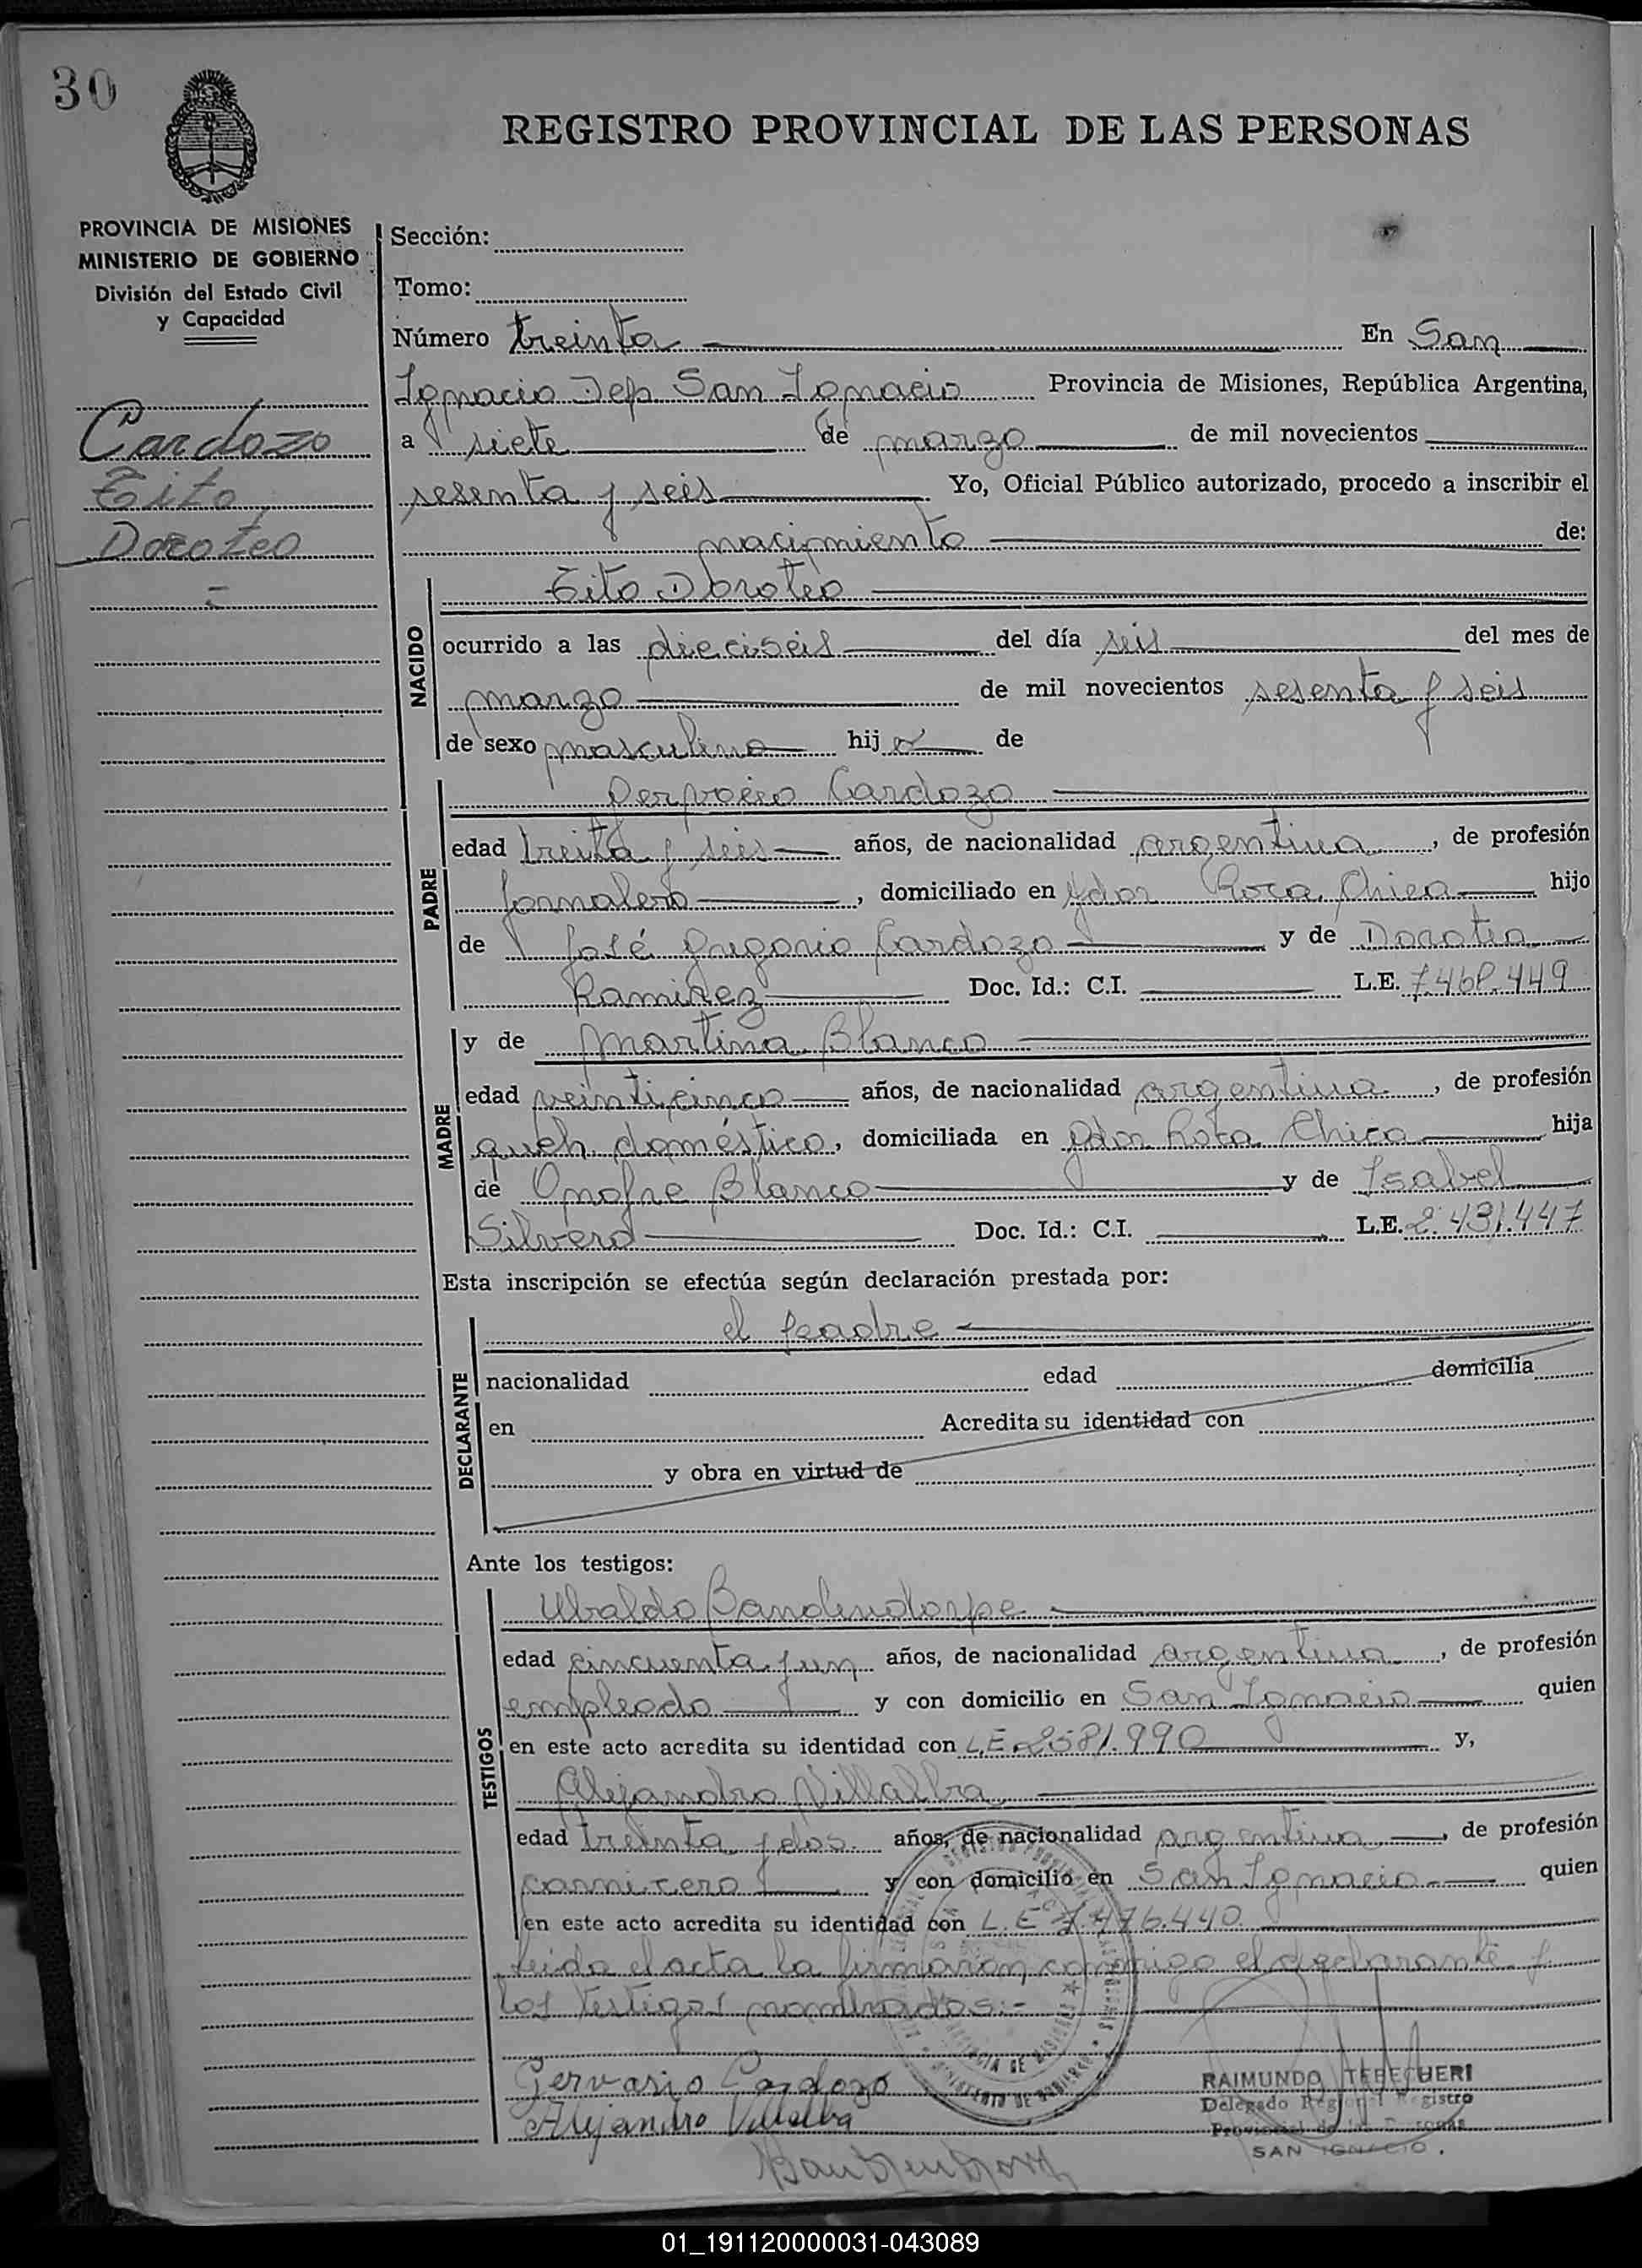 30
REGISTRO PROVINCIAL DE LAS PERSONAS
PROVINCIA DE MISIONES
MINISTERIO DE GOBIERNO
División del Estado Civil
y Capacidad
Cardozo
Tito
Doroteo
Sección:
Tomo:
Número treinta En San
Ignacio Dep San Ignacio Provincia de Misiones, República Argentina,
a siete de marzo de mil novecientos
sesenta y seis Yo, Oficial Público autorizado, procedo a inscribir el
nacimiento de:
NACIDO
Tito Doroteo
ocurrido a las dieciseis del día seis del mes de
marzo de mil novecientos sesenta y seis
de sexo masculino hijo de
PADRE
Cardozo
edad treita y seis años, de nacionalidad argentina, de profesión
jornalero, domiciliado en Gdor Roca Chica hijo
de José Gregorio Cardozo y de Dorotea
Ramirez Doc. Id.: C.I. L.E. 7.468.449
MADRE
y de Martina Blanco
edad veinticinco años, de nacionalidad argentina, de profesión
queh doméstico, domiciliada en Gdor Roca Chica hija
de Onofre Blanco y de Isabel
Silvero Doc. Id.: C.I. L.E. 2.431.447
Esta inscripción se efectúa según declaración prestada por:
DECLARANTE
el padre
nacionalidad edad domicilia
en Acredita su identidad con
y obra en virtud de
Ante los testigos:
TESTIGOS
Ubaldo
edad cincuenta y un años, de nacionalidad argentina, de profesión
empleado y con domicilio en San Ignacio quien
en este acto acredita su identidad con L.E. 2581.990 y,
Alejandro Villalba
edad treinta y dos años, de nacionalidad argentina, de profesión
carnicero y con domicilio en San Ignacio quien
en este acto acredita su identidad con L.E 7.476.440
Leida el acta la firmaron conmigo el declarante y
los testigos nombrados:-
Gervasio Cardozo
Alejandro Villalba
RAIMUNDO TEBECHERI
Delegado Regional Registro
Provincial de las Personas
SAN IGNACIO.
01_191120000031-043089